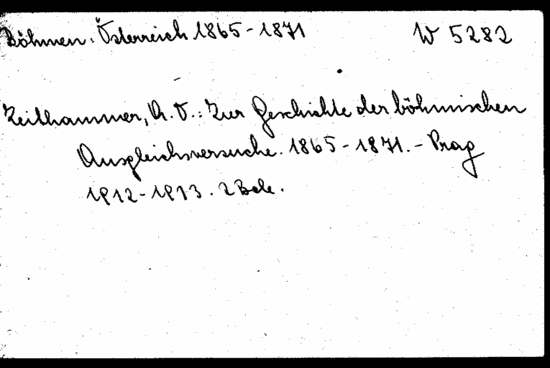 Böhmen. Österreich 1865-1871 W 5282
Zeithammer, A. O.: Zur Geschichte der böhmischen
Ausgleichsversuche. 1865-1871. - Prag
1912-1913. 2 Bde.